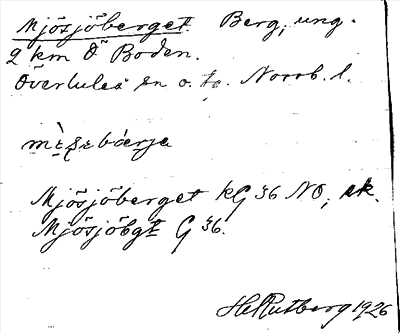 Mjösjöberget. Berg, ung.
2 km Ö Boden.
Överluleå sn o. to. Norrb. l.
Mjösjöberget kG 36 NO, ek.
Mjösjöbgt G 36.
H Rutberg 1926